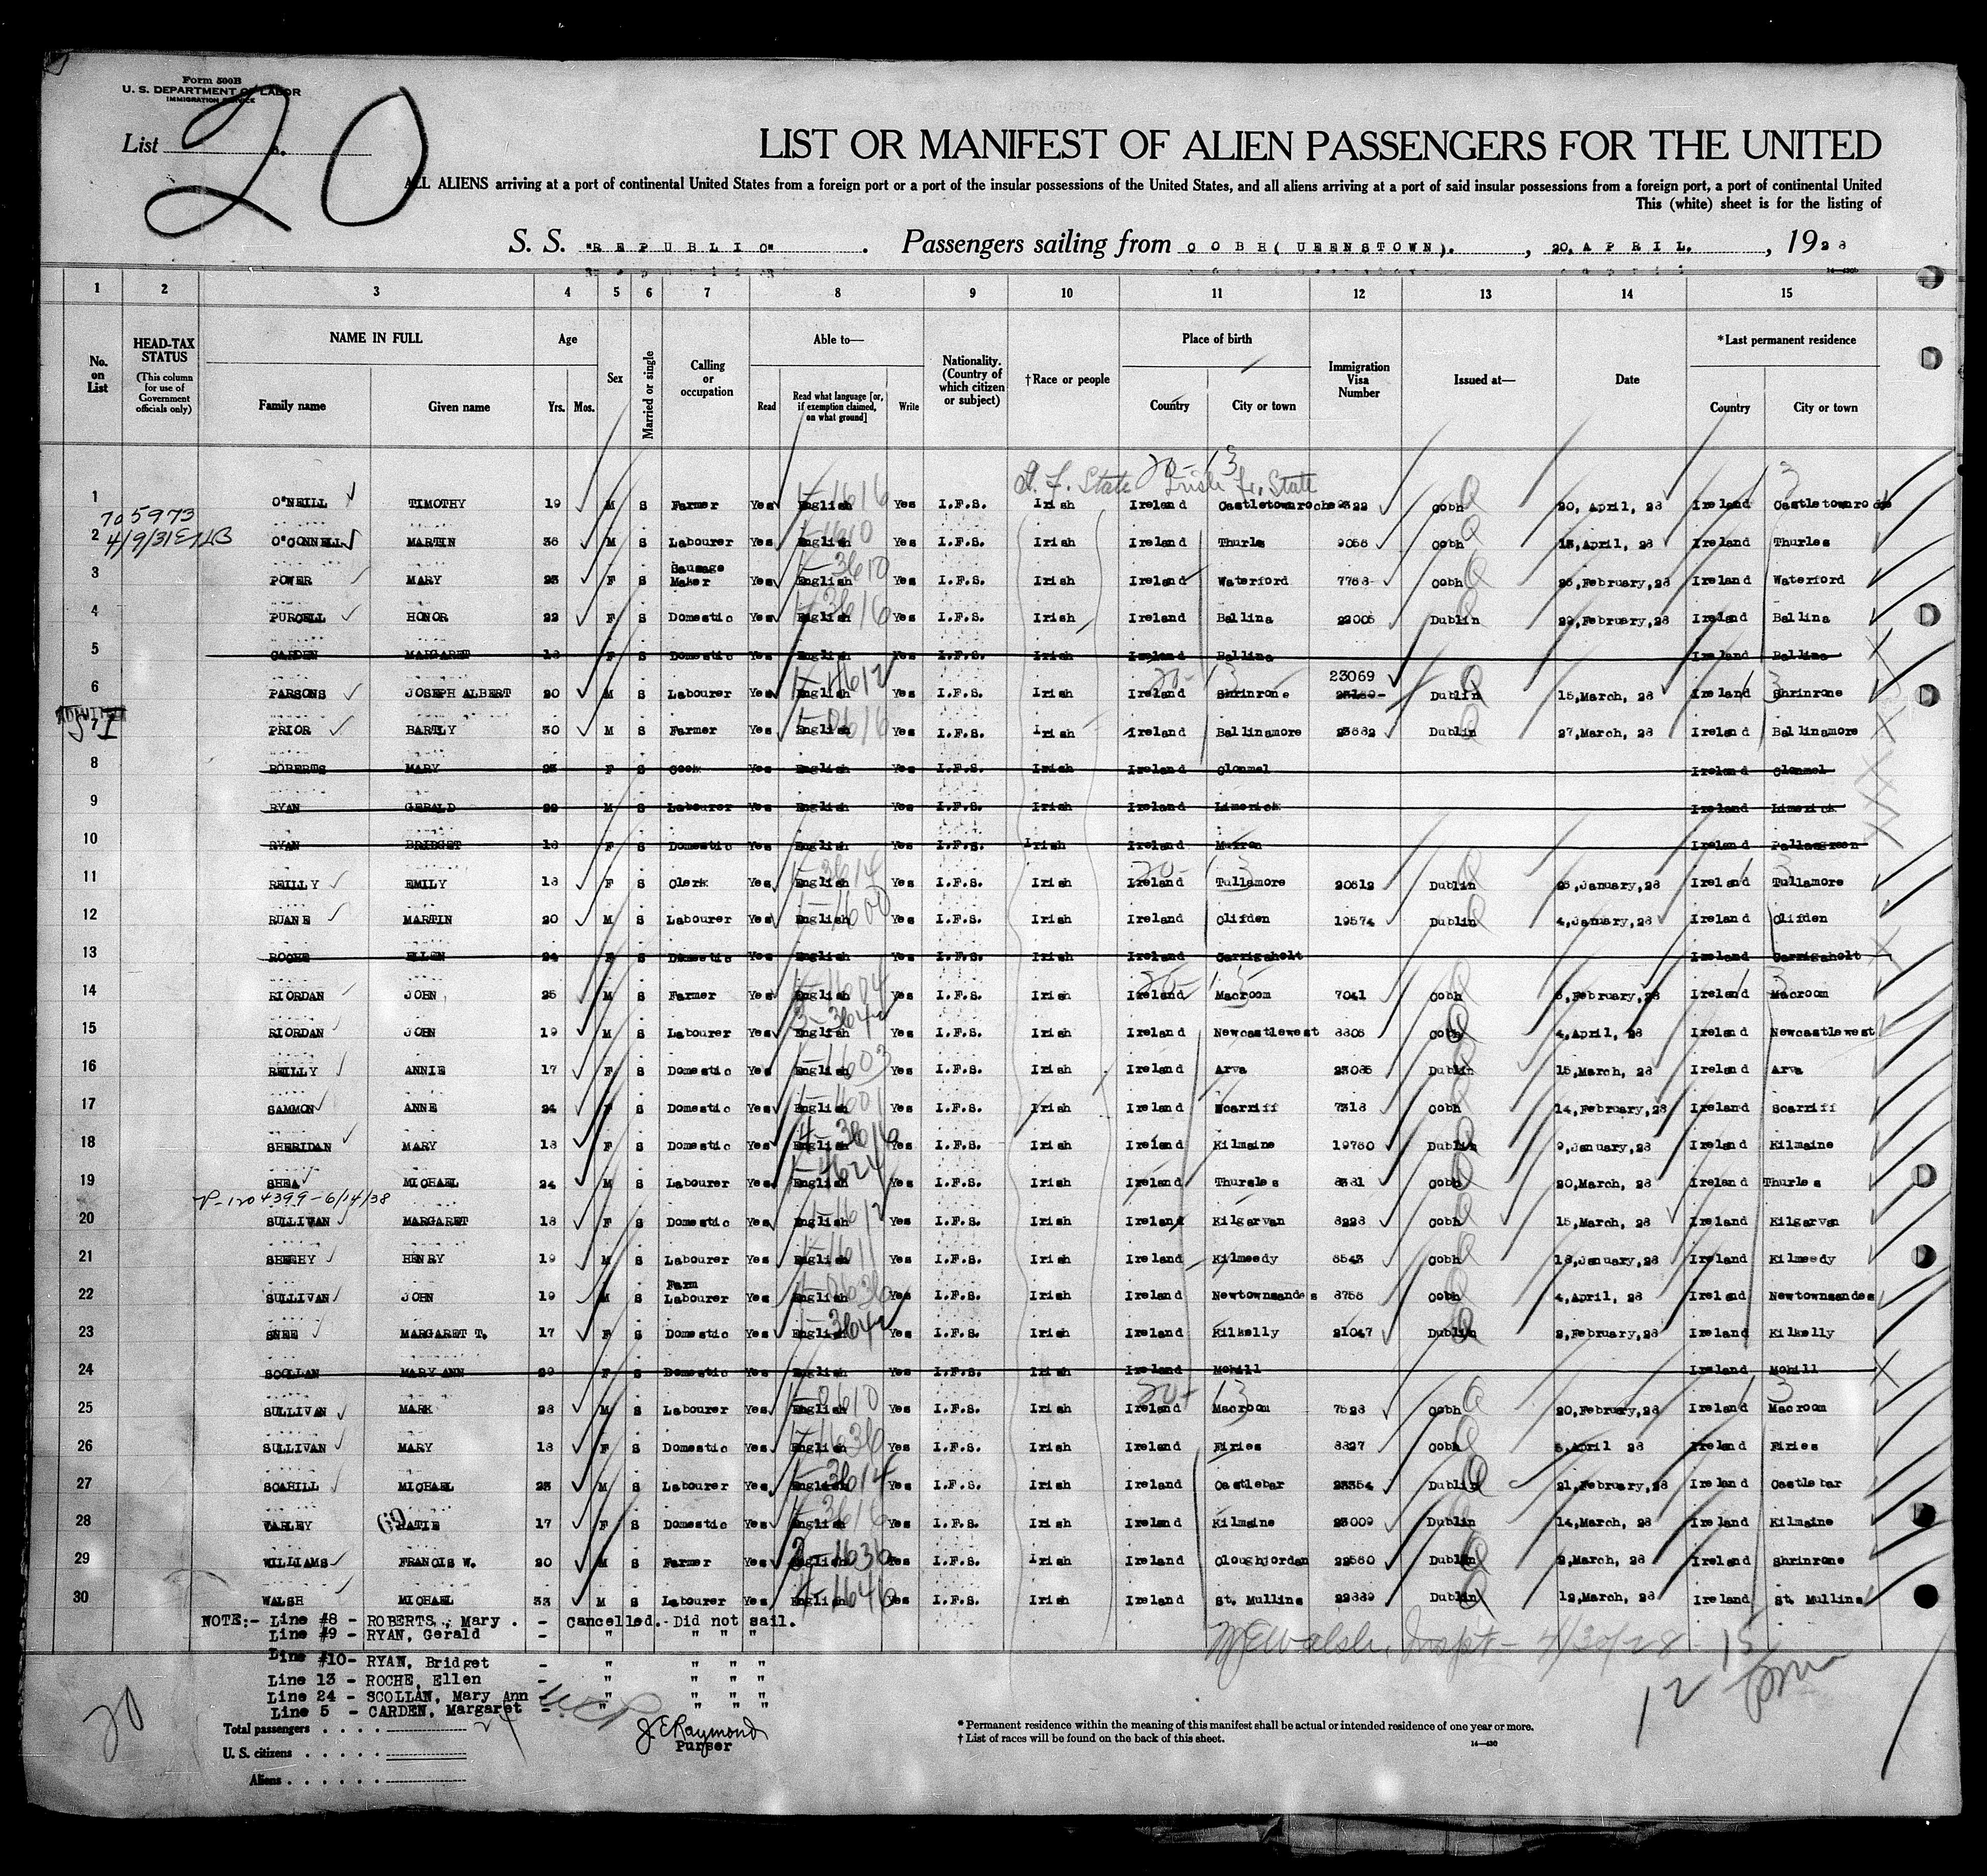 Form 500B
U. S. DEPARTMENT OF LABOR
IMMIGRATION SERVICE
List 20
LIST OR MANIFEST OF ALIEN PASSENGERS FOR THE UNITED
ALL ALIENS arriving at a port of continental United States from a foreign port or a port of the insular possessions of the United States, and all aliens arriving at a port of said insular possessions from a foreign port, a port of continental United
This (white) sheet is for the listing of
S. S. "REPUBLIC". Passengers sailing from COBH( UEENSTOWN). , 20, APRIL. , 1928
1 2 3 4 5 6 7 8 9 10 11 12 13 14 15
No. on List HEAD-TAX STATUS (This column for use of Government officials only) NAME IN FULL Family name Given name Age Yrs. Mos. Sex Married or single Calling or occupation Able to— Read Read what language [or, if exemption claimed, on what ground] Write Nationality. (Country of which citizen or subject) †Race or people Place of birth Country City or town Immigration Visa Number Issued at— Date *Last permanent residence Country City or town
20- 13
I. F. State Irish Fr. State
1 O'NEILL TIMOTHY 19 M S Farmer Yes English Yes I.F.S. Irish Ireland Castletownroche 9322 Cobh 20, April, 28 Ireland Castletownroche
705973
4/9/31
2 O'CONNELL MARTIN 36 M S Labourer Yes English Yes I.F.S. Irish Ireland Thurls 9056 Cobh 13,April, 28 Ireland Thurles
3 POWER MARY 23 F S Sausage Maker Yes English Yes I.F.S. Irish Ireland Waterford 7768 Cobh February,28 Ireland Waterford
4 PURCELL HONOR 22 F S Domestic Yes English Yes I.F.S. Irish Ireland Ballina 22005 Dublin 22,February,28 Ireland Ballina
5 CARDEN MARGARET 18 F S Domestic Yes English Yes I.F.S. Irish Ireland Ballina Ireland Ballina
6 PARSONS JOSEPH ALBERT 20 M S Labourer Yes English Yes I.F.S. Irish Ireland Shrinrone 23069 Dublin 15,March, 28 Ireland Shrinrone
7 PRIOR BARTLY 30 M S Farmer Yes English Yes I.F.S. Irish Ireland Ballinamore 23682 Dublin 27,March, 28 Ireland Ballinamore
8 ROBERTS MARY 23 F S Cook Yes English Yes I.F.S. Irish Ireland Clonmel Ireland Clonmel
9 RYAN GERALD 22 M S Labourer Yes English Yes I.F.S. Irish Ireland Limerick Ireland Limerick
10 RYAN BRIDGET 18 F S Domestic Yes English Yes I.F.S. Irish Ireland Ireland Pallasgreen
11 REILLY EMILY 18 F S Clerk Yes English Yes I.F.S. Irish Ireland Tullamore 20512 Dublin January,28 Ireland Tullamore
12 RUANE MARTIN 20 M S Labourer Yes English Yes I.F.S. Irish Ireland Clifden 19574 Dublin 4,January,28 Ireland Clifden
13 ROCHE ELLEN 24 F S Domestic Yes English Yes I.F.S. Irish Ireland Carrigaholt Ireland Carrigaholt
14 RIORDAN JOHN 25 M S Farmer Yes English Yes I.F.S. Irish Ireland Macroom 7041 Cobh February, 28 Ireland Macroom
15 RIORDAN JOHN 19 M S Labourer Yes English Yes I.F.S. Irish Ireland Newcastlewest 8806 Cobh 4,April, 28 Ireland Newcastlewest
16 REILLY ANNIE 17 F S Domestic Yes English Yes I.F.S. Irish Ireland Arva 23085 Dublin 15,March, 28 Ireland Arva
17 SAMMON ANNE 24 F S Domestic Yes English Yes I.F.S. Irish Ireland Scarriff 7318 Cobh 14,February,28 Ireland Scarriff
18 SHERIDAN MARY 18 F S Domestic Yes English Yes I.F.S. Irish Ireland Kilmaine 19760 Dublin 9,January,28 Ireland Kilmaine
19 SHEA MICHAEL 24 M S Labourer Yes English Yes I.F.S. Irish Ireland Thursles 8381 Cobh 20,March, 28 Ireland Thurles
V-1204399-6/14/38
20 SULLIVAN MARGARET 18 F S Domestic Yes English Yes I.F.S. Irish Ireland Kilgarvan 8228 Cobh 15,March, 28 Ireland Kilgarvan
21 SHEEHY HENRY 19 M S Labourer Yes English Yes I.F.S. Irish Ireland Kilmeedy 6543 Cobh 18,January,28 Ireland Kilmeedy
22 SULLIVAN JOHN 19 M S Farm Labourer Yes English Yes I.F.S. Irish Ireland Newtownsandes 8756 Cobh 4,April, 28 Ireland Newtownsandes
23 SNEE MARGARET T. 17 F S Domestic Yes English Yes I.F.S. Irish Ireland Kilkelly 21047 Dublin 2,February,28 Ireland Kilkelly
24 SCOLLAN MARY ANN 29 F S Domestic Yes English Yes I.F.S. Irish Ireland Mohill Ireland Mohill
25 SULLIVAN MARK 28 M S Labourer Yes English Yes I.F.S. Irish Ireland Macroom 7528 Cobh 20,February,28 Ireland Macroom
26 SULLIVAN MARY 18 F S Domestic Yes English Yes I.F.S. Irish Ireland Firies 8827 Cobh 5,April 28 Ireland Firies
27 SCAHILL MICHAEL 23 M S Labourer Yes English Yes I.F.S. Irish Ireland Castlebar 23354 Dublin 21,February,28 Ireland Castlebar
28 VARLEY KATIE 17 F S Domestic Yes English Yes I.F.S. Irish Ireland Kilmaine 23009 Dublin 14,March, 28 Ireland Kilmaine
29 WILLIAMS FRANCIS W. 20 M S Farmer Yes English Yes I.F.S. Irish Ireland Cloughjordan 22560 Dublin 2,March, 28 Ireland Shrinrone
30 WALSH MICHAEL 33 M S Labourer Yes English Yes I.F.S. Irish Ireland St. Mullins 22889 Dublin 12,March, 28 Ireland St. Mullins
NOTE:- Line #8 - ROBERTS, Mary . - Cancelled. Did not sail.
Line #9 - RYAN, Gerald - " " " "
Line #10- RYAN, Bridget - " " " "
Line 13 - ROCHE, Ellen " " " "
Line 24 - SCOLLAN, Mary Ann - " " " "
Line 5 - CARDEN, Margaret - " " " "
Walsh, Inspt- 4/30/28
15
12
20
24
Total passengers . . . .
J.E.Raymond
Purser
U. S. citizens . . . . .
Aliens . . . . . .
* Permanent residence within the meaning of this manifest shall be actual or intended residence of one year or more.
† List of races will be found on the back of this sheet.
14—430